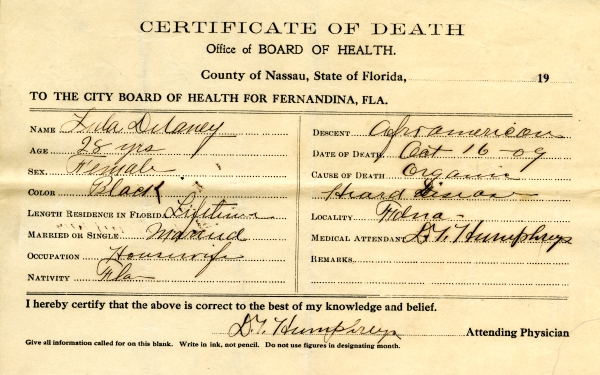 CERTIFICATE OF DEATH
Office of BOARD OF HEALTH.
County of Nassau, State of Florida, 19
TO THE CITY BOARD OF HEALTH FOR FERNANDINA, FLA.
NAME Lula Delaney
AGE 28 yrs
SEX Female
COLOR Black
LENGTH RESIDENCE IN FLORIDA Lifetime
MARRIED OR SINGLE Married
OCCUPATION Housewife
NATIVITY Fla
DESCENT Afroamerican
DATE OF DEATH Oct 16 - 09
CAUSE OF DEATH Organic
Heard Disease
LOCALITY Fdna -
MEDICAL ATTENDANT Humphreys
REMARKS
I hereby certify that the above is correct to the best of my knowledge and belief.
Humphreys Attending Physician
Give all information called for on this blank. Write in ink, not pencil. Do not use figures in designating month.